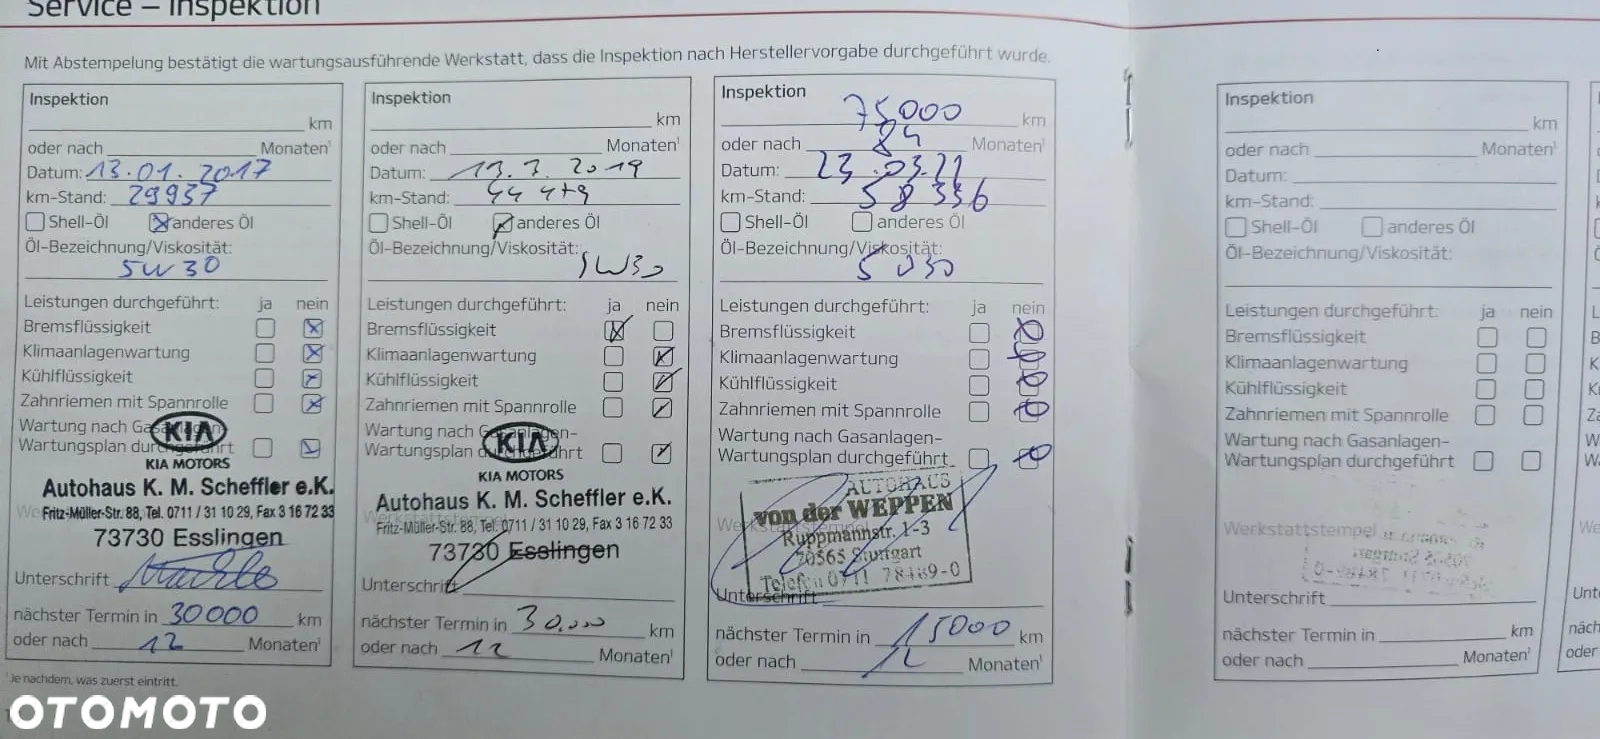 Service – Inspektion
Mit Abstempelung bestätigt die wartungsausführende Werkstatt, dass die Inspektion nach Herstellervorgabe durchgeführt wurde.
Inspektion
km
oder nach Monaten¹
Datum: 13.01.2017
km-Stand: 29937
Shell-Öl anderes Öl
Öl-Bezeichnung/Viskosität:
5W30
Leistungen durchgeführt: ja nein
Bremsflüssigkeit
Klimaanlagenwartung
Kühlflüssigkeit
Zahnriemen mit Spannrolle
Wartung nach Gasanlagen-
Wartungsplan durchgeführt
KIA
KIA MOTORS
Autohaus K. M. Scheffler e.K.
Fritz-Müller-Str. 88, Tel. 0711 / 31 10 29, Fax 3 16 72 33
73730 Esslingen
Unterschrift
nächster Termin in 30000 km
oder nach 12 Monaten¹
¹Je nachdem, was zuerst eintritt.
Inspektion
km
oder nach Monaten¹
Datum: 2019
km-Stand: 44
Shell-Öl anderes Öl
Öl-Bezeichnung/Viskosität:
5W30
Leistungen durchgeführt: ja nein
Bremsflüssigkeit
Klimaanlagenwartung
Kühlflüssigkeit
Zahnriemen mit Spannrolle
Wartung nach Gasanlagen-
Wartungsplan durchgeführt
KIA
KIA MOTORS
Autohaus K. M. Scheffler e.K.
Werkstattstempel
Fritz-Müller-Str. 88, Tel. 0711 / 31 10 29, Fax 3 16 72 33
73730 Esslingen
Unterschrift
nächster Termin in 30.000 km
oder nach 12 Monaten¹
Inspektion
75000 km
oder nach 84 Monaten¹
Datum: 23.03.21
km-Stand: 58336
Shell-Öl anderes Öl
Öl-Bezeichnung/Viskosität:
5 030
Leistungen durchgeführt: ja nein
Bremsflüssigkeit
Klimaanlagenwartung
Kühlflüssigkeit
Zahnriemen mit Spannrolle
Wartung nach Gasanlagen-
Wartungsplan durchgeführt
AUTOHAUS
von der WEPPEN
Werkstattstempel
Ruppmannstr. 1-3
70565 Stuttgart
Telefon 0711 78489-0
Unterschrift
nächster Termin in 15000 km
oder nach 12 Monaten¹
Inspektion
km
oder nach Monaten¹
Datum:
km-Stand:
Shell-Öl anderes Öl
Öl-Bezeichnung/Viskosität:
Leistungen durchgeführt: ja nein
Bremsflüssigkeit
Klimaanlagenwartung
Kühlflüssigkeit
Zahnriemen mit Spannrolle
Wartung nach Gasanlagen-
Wartungsplan durchgeführt
Werkstattstempel
Unterschrift
nächster Termin in km
oder nach Monaten¹
OTOMOTO